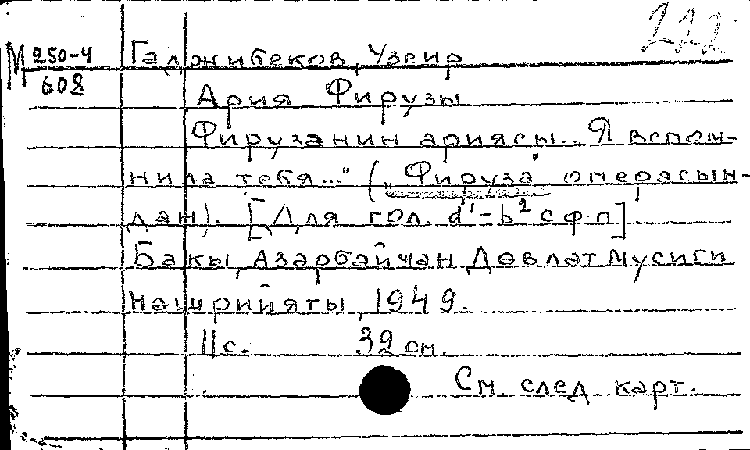 222
М 250-4 Гаджибеков, Узеир
608
Ария Фирузы
Фирузанин ариясы. „Я вспом-
нила тебя..." („Фируза" операсын-
дан). [Для гол. d'-b² с ф-п]
Бакы, Азәрбайчан Девләт Мусиги
Нашрийяты, 1949.
11 с. 32 см.
См. след карт.